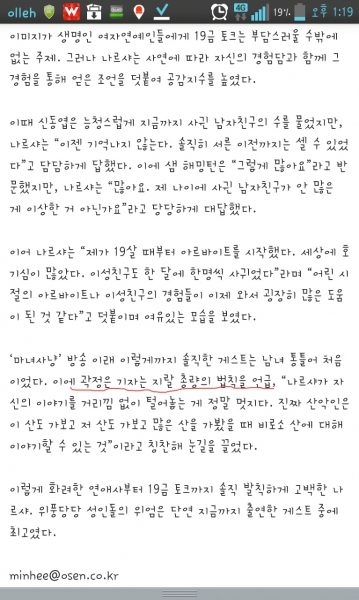 olleh 4G 19% 오후 1:19
이미지가 생명인 여자연예인들에게 19금 토크는 부담스러울 수밖에
없는 주제. 그러나 나르샤는 사연에 따라 자신의 경험담과 함께 그
경험을 통해 얻은 조언을 덧붙여 공감지수를 높였다.
이때 신동엽은 능청스럽게 지금까지 사귄 남자친구의 수를 물었지만,
나르샤는 “이젠 기억나지 않는다. 솔직히 서른 이전까지는 셀 수 있었
다”고 담담하게 답했다. 이에 샘 해밍턴은 “그렇게 많아요”라고 반
문했지만, 나르샤는 “많아요. 제 나이에 사귄 남자친구가 안 많은
게 이상한 거 아닌가요”라고 당당하게 대답했다.
이어 나르샤는 “제가 19살 때부터 아르바이트를 시작했다. 세상에 호
기심이 많았다. 이성친구도 한 달에 한명씩 사귀었다”라며 “어린 시
절의 아르바이트나 이성친구의 경험들이 이제 와서 굉장히 많은 도움
이 된 것 같다”고 덧붙이며 여유있는 모습을 보였다.
‘마녀사냥’ 방송 이래 이렇게까지 솔직한 게스트는 남녀 통틀어 처음
이었다. 이에 곽정은 기자는 지랄 총량의 법칙을 언급, “나르샤가 자
신의 이야기를 거리낌 없이 털어놓는 게 정말 멋지다. 진짜 산악인은
이 산도 가보고 저 산도 가보고 많은 산을 가봤을 때 비로소 산에 대해
이야기할 수 있는 것”이라고 칭찬해 눈길을 끌었다.
이렇게 화려한 연애사부터 19금 토크까지 솔직 발칙하게 고백한 나
르샤. 위풍당당 성인돌의 위엄은 단연 지금까지 출연한 게스트 중에
최고였다.
minhee@osen.co.kr